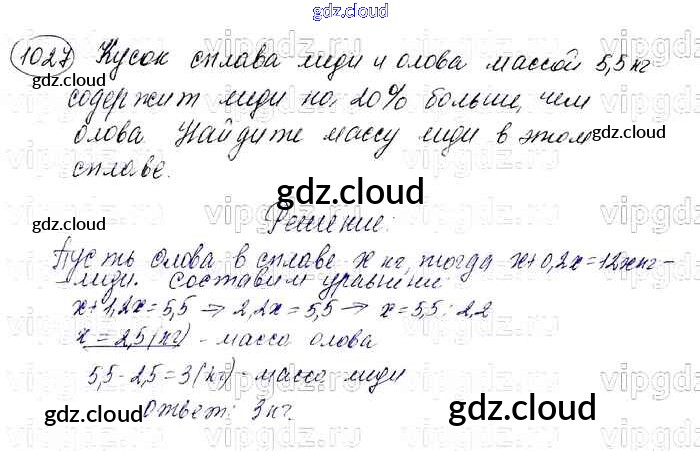 gdz.cloud
1027 Кусок сплава меди и олова массой 5,5 кг
содержит меди на 20% больше, чем
олова. Найдите массу меди в этом
сплаве.
Решение:
Пусть олова в сплаве x кг, тогда x+0,2x=1,2x кг -
меди. Составим уравнение
x+1,2x=5,5 → 2,2x=5,5 → x=5,5:2,2
x=2,5(кг) - масса олова
5,5-2,5=3(кг) - масса меди
Ответ: 3 кг.
gdz.cloud
gdz.cloud
gdz.cloud
gdz.cloud
gdz.cloud
gdz.cloud
gdz.cloud
gdz.cloud
gdz.cloud